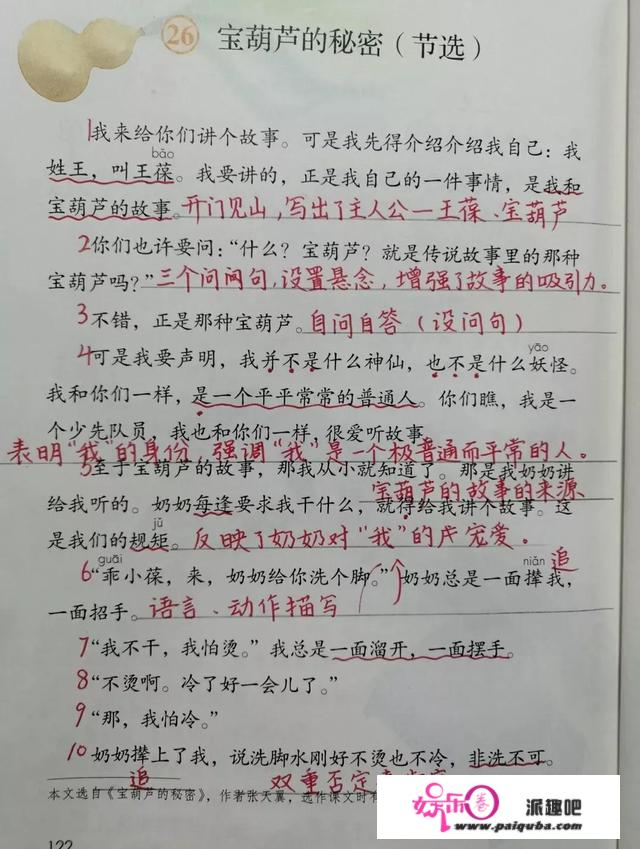 26 宝葫芦的秘密（节选）
1我来给你们讲个故事。可是我先得介绍介绍我自己：我
bǎo
姓王，叫王葆。我要讲的，正是我自己的一件事情，是我和
宝葫芦的故事。开门见山，写出了主人公—王葆、宝葫芦
2你们也许要问：“什么？宝葫芦？就是传说故事里的那种
宝葫芦吗？”三个问问句，设置悬念，增强了故事的吸引力。
3不错，正是那种宝葫芦。自问自答（设问句）
yāo
4可是我要声明，我并不是什么神仙，也不是什么妖怪。
我和你们一样，是一个平平常常的普通人。你们瞧，我是一
个少先队员，我也和你们一样，很爱听故事。
表明“我”的身份，强调“我”是一个极普通而平常的人。
5至于宝葫芦的故事，那我从小就知道了。那是我奶奶讲
宝葫芦的故事的来源
给我听的。奶奶每逢要求我干什么，就得给我讲个故事。这
jǔ
是我们的规矩。反映了奶奶对“我”的宠爱。
guāi niǎn 追
6“乖小葆，来，奶奶给你洗个脚。”奶奶总是一面撵我，
一面招手。语言、动作描写
7“我不干，我怕烫。”我总是一面溜开，一面摆手。
8“不烫啊。冷了好一会儿了。”
9“那，我怕冷。”
10奶奶撵上了我，说洗脚水刚好不烫也不冷，非洗不可。
追 双重否定
本文选自《宝葫芦的秘密》，作者张天翼，选作课文时有
122
娱乐卷 派趣吧
www.paiquba.com